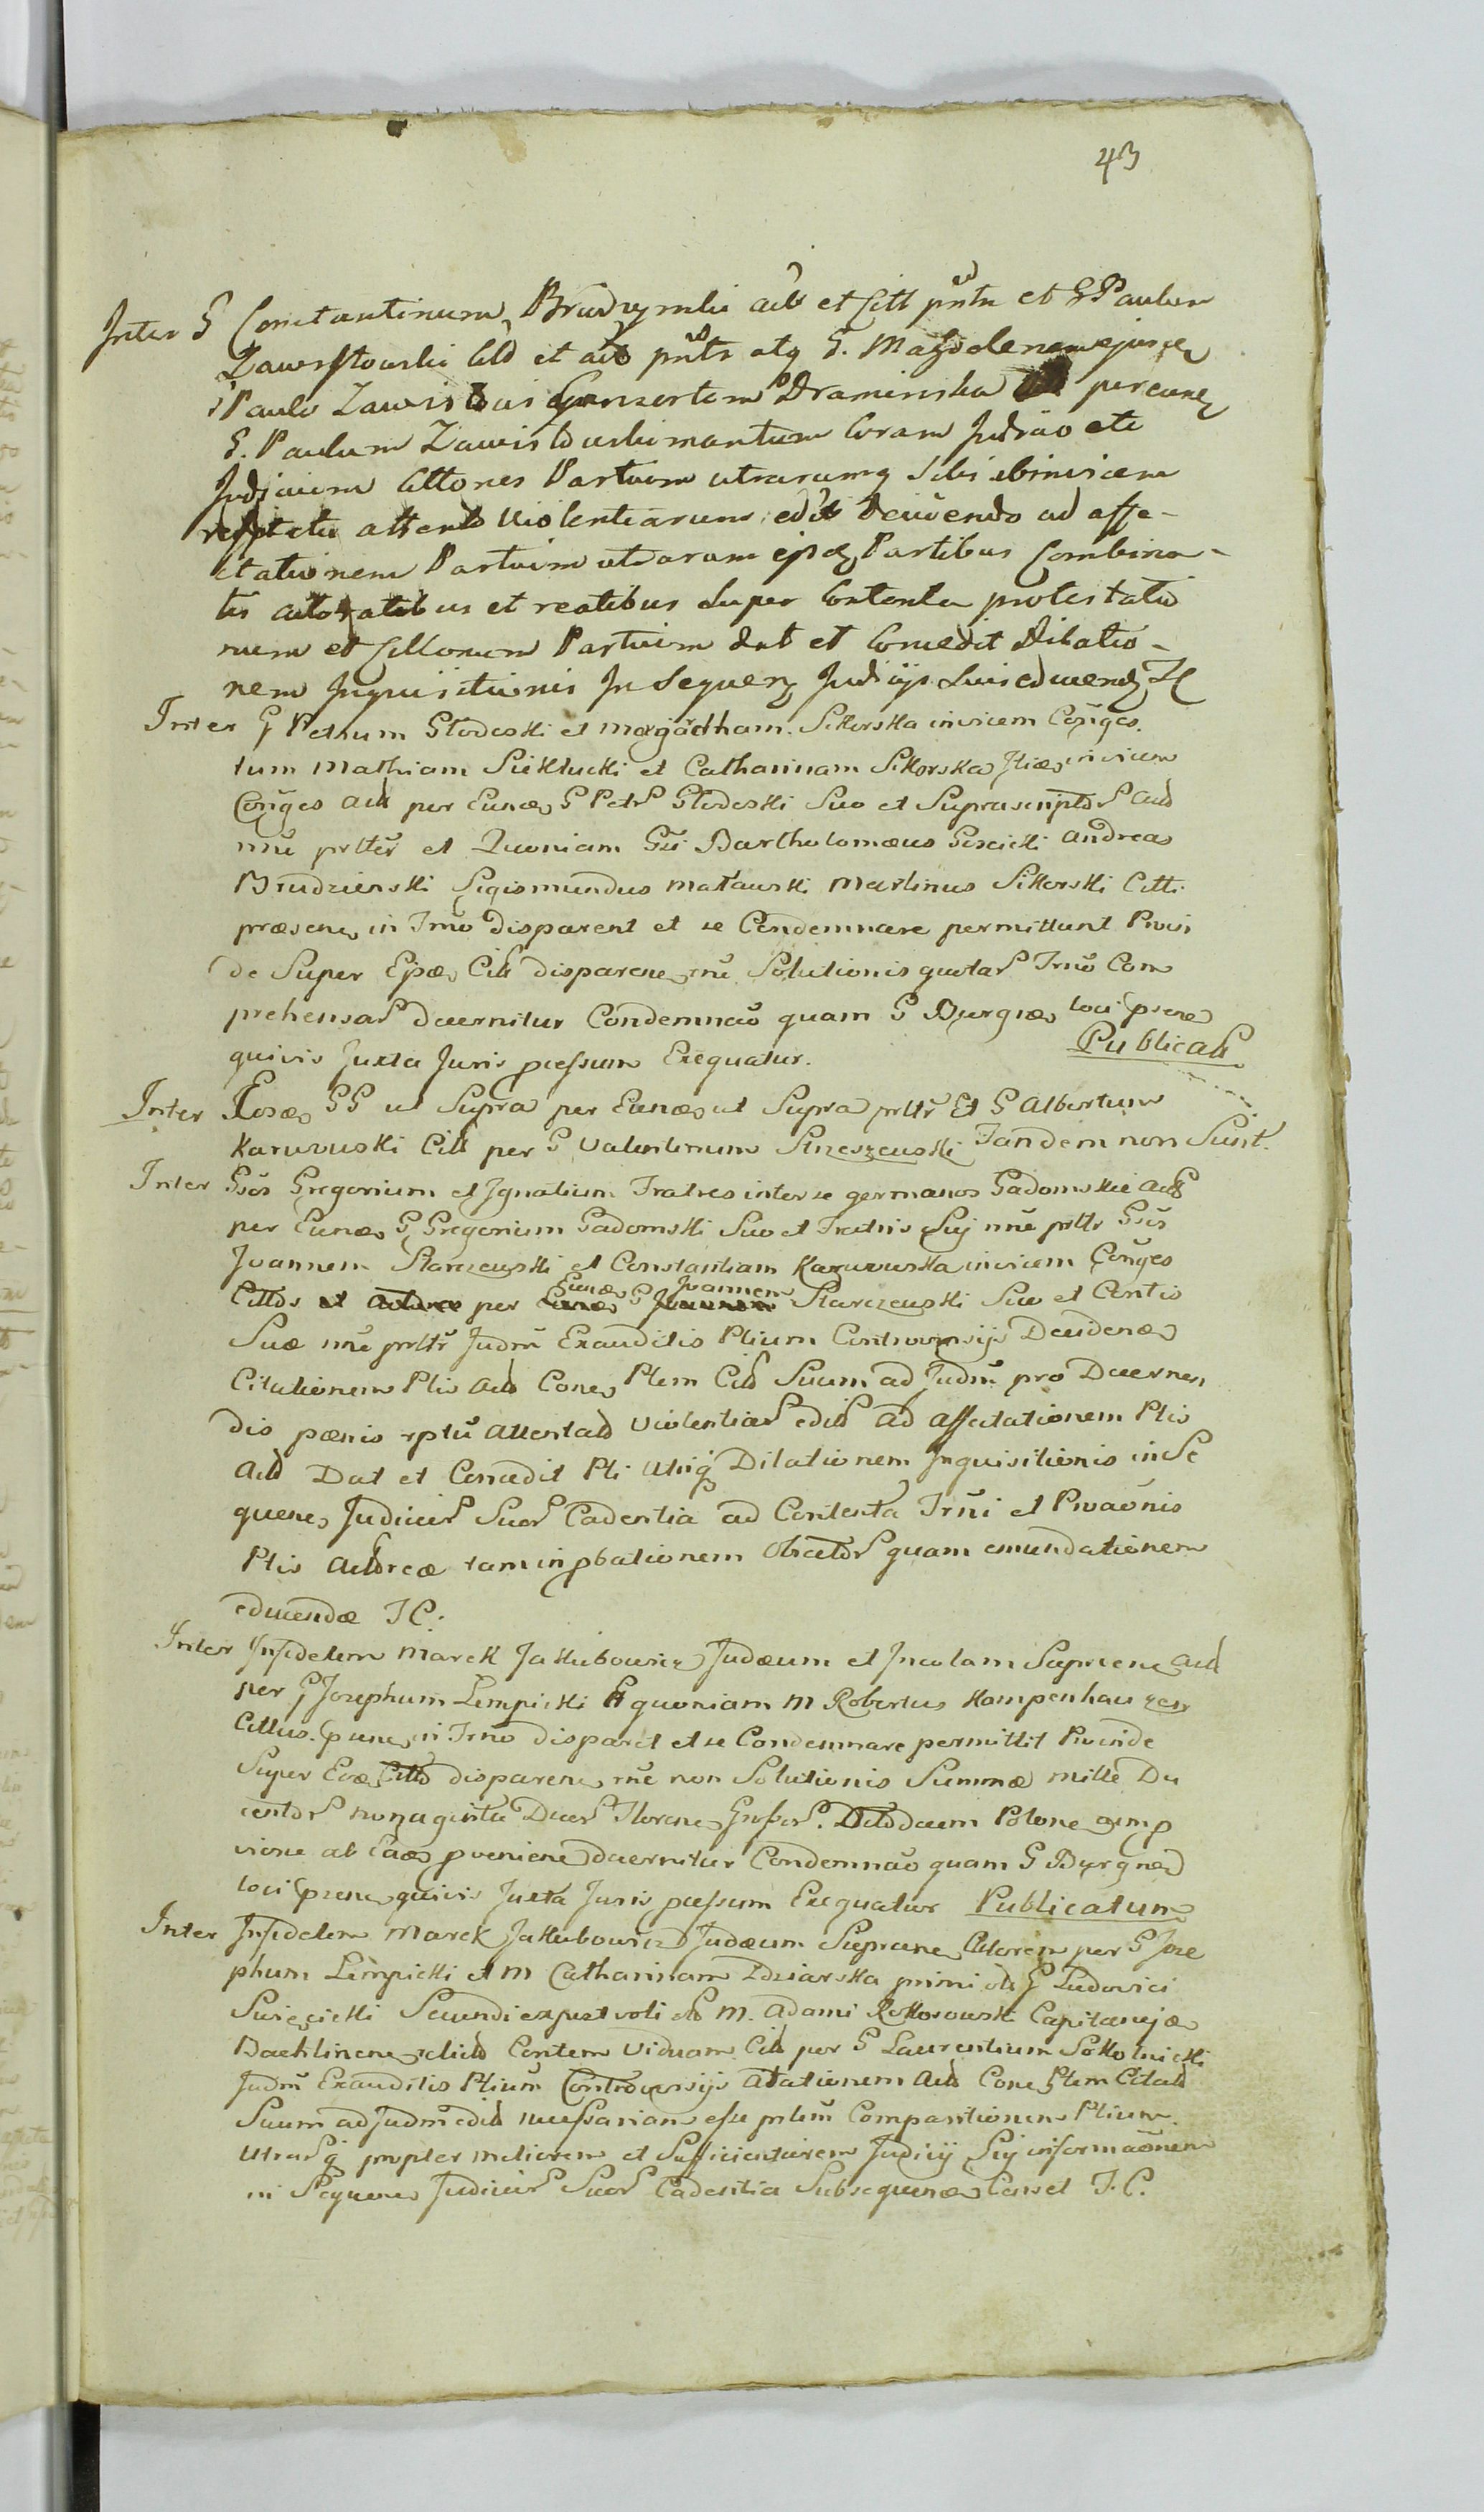 43
Inter G Constantinum Brudzynski act et Citt pntn et G Paulum
Zawistowski Citt et act pnts atq G. Magdalenam ejusq
Paulo Zawistowski Consortem Draminska per eunq
G. Paulum Zawistowski maritum Coram Judicio etc
Judicium Cittones Partium utrarumq Sibi ibinvicem
respectu attent violentiarum edit devidendo ad affe-
ctationem Partium utrarum ejsdq Partibus Combina-
tis actoratibus et reatibus Super Contenta protestatio
num et Cittonum Partium dat et Concedit Dilatio-
nem Inquisitionis In Sequenq Judicijs Suis educendq IC
Inter G Petrum Glodoski et margartham Sikorska invicem Conges.
tum Mathiam Siklucki et Catharinam Sikorska Itidem invicem
Conges act per Eunde G Petr Glodoski Suo et Suprascriptor act
nne prltter et Quoniam Gsi Bartholomæus Goscicki Andreas
Brudzienski Sigismundus Matauski Martinus Sikorski Citti
præsene in Trno Disparent et se Condemnare permittunt Proin
de Super Ejsde Citt disparene rne Solutionis quotar Trno Com
prehensar decernitur Condemnao quam G Burgræ loci psene
quivis Juxta Juris pcessum Exequatur. Publicatt
Inter Eosde GG ut Supra per Eunde ut Supra prltr Et G Albertum
Karwoski Citt per G Valentinum Strzeszewski Tandem non Sunt.
Inter Gsos Gregorium et Ignatium Fratres inter se germanos Gadomskie actt
per Eunde G Gregorium Gadomski Suo et Fratris Sui nne prltr Gsos
Joannem Starczewski et Constantiam Karwowska invicem Conges
Cittos et per Eunde G Joannem Starczewski Suo et Contis
Suæ nne prltr Judm Exauditis Ptium Controversijs Devidendo
Citationem Ptis act Cone Ptem Citt Suum ad Judm pro Decernen
dis pænis rptu attentat violentiar edit ad affectationem Ptis
act Dat et Concedit Pti utriq Dilationem Inquisitionis in Se
quene Judicier Suor Cadentia ad Contenta Trni et Provaonis
Ptis actoreæ tam in pbationem Obiectdr quam emundationem
educendæ IC.
Inter Infidelem Marek Jakubowicz Judæum et Incolam Sepriene act
per G Josephum Lempicki Et quoniam M Robertus Kampenhauzen
Cittus psene in Trno disparet et se Condemnare permittit Proinde
Super Eode Citto disparene rne non Solutionis Summæ mille Du
centor nonaginta Duer Florene Grossor. Octodecem Polone
viene ab Eade pveniene decernitur Condemnao quam G Burgræ
loci psene quivis Juxta Juris pcessum Exequatur Publicatum
Inter Infidelem Marek Jakubowicz Judæum Sepriene Actorem per G Jose
phum Lempicki et M Catharinam Zdziarska primi olt G Ludovici
Swięcicki Secundi expost voti olt M. Adami Rokosowski Capitanejæ
Baehlinene relict Contem Viduam Citt per G Laurentium Sokolnicki
Judm Exauditis Ptium Controversijs Citationem act Cone Ptem Citatt
Suum ad Judm edit necessariam esse prlem Comparitionem Ptium
utrarq propter meliorem et Sufficientiorem Judicij Sui informaonem
in Sequene Judicier Suor Cadentia Subsequende Censet I.C.